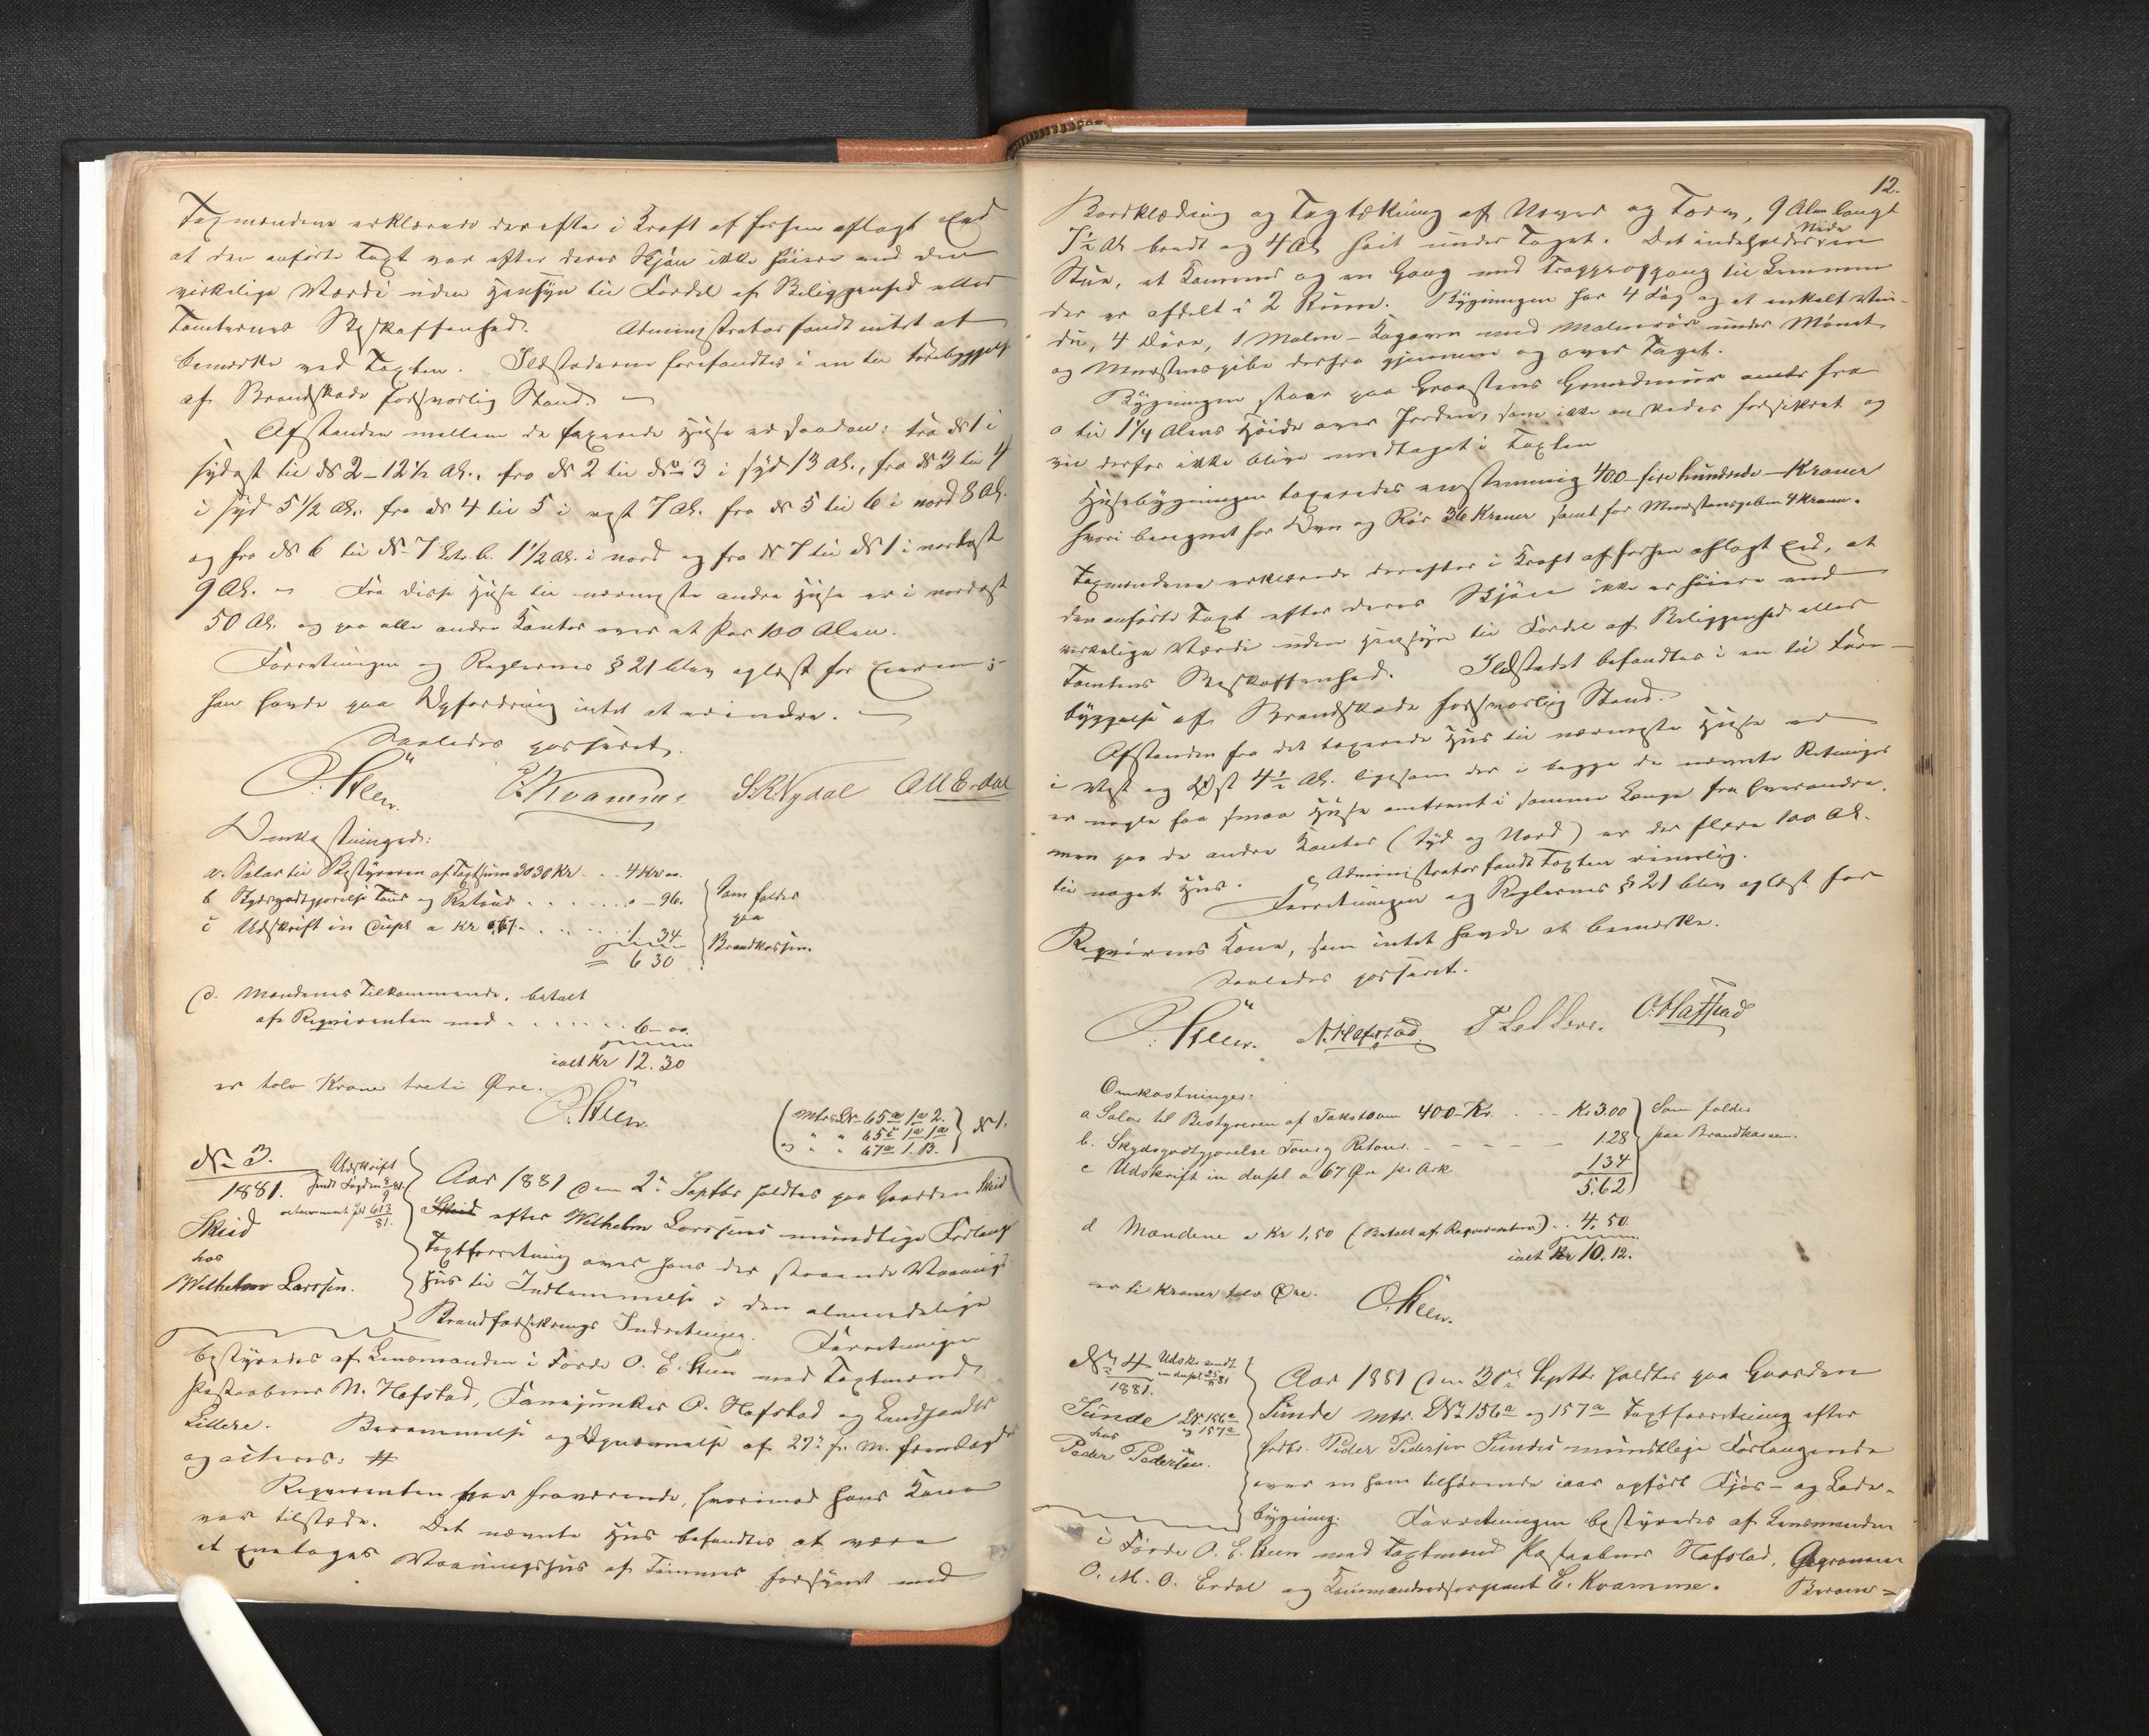 Taxmændene erklærede derefter i Kraft af forhen aflagt Eed
at den anførte Taxt var efter deres Skjøn ikke høiere end den
virkelige Værdi uden Hensyn til Fordel af Beliggenhed eller
Tomternes Beskaffenhed. Administrator fandt intet at
bemærke ved Taxten. Ildstederne forefandtes i en til Forebyggelse
af Brandskade forsvarlig Stand.
Afstanden mellem de taxerede Huse er saadan: fra № 1 i
sydost til № 2 - 12½ Al., fra № 2 til № 3 i syd 13 Al., fra № 3 til 4
i syd 5½ Al. fra № 4 til 5 i vest 7 Al. fra № 5 til 6 i nord 8 Al.
og fra № 6 til № 7 Litr. b. 1½ Al. i nord og fra № 7 til № 1 i nordost
9 Al. Fra disse Huse til nærmeste andre Huse er i nordost
50 Al. og paa alle andre Kanter over et Par 100 Alen.
Forretningen og Reglernes § 21 blev oplæst for Eieren;
han havde paa Opfordring intet at erindre.
Saaledes passeret.
O. Steen. E. Kvamme S. R. Nydal O M Erdal
Omkostninger:
a. Salar til Bestyreren af Taxtsum 3030 Kr . . 4 Kr 00.
b Skydsgodtgjørelse Tour og Retour . . . . . . - 96.
c Udskrift in dupl a Kr 0,67. . . . . 1. 34
= 6 30
Som falder
paa
Brandkassen.
d. Mændenes Tilkommende, betalt
af Reqvirenten med . . . . . . . 6 - 00.
ialt Kr 12.30
er tolv Kroner treti Øre.
O. Steen.
Mtr № 65a 1a 2.
" " 65c 1a 1a
og " " 67a 1. B.
№ 1.
№ 3.
1881.
Udskrift
sendt Fogden 8/9 81.
returneret
Skeid
hos
Wilhelm Larssen.
Aar 1881 den 2. Septbr holdtes paa Gaarden Skeid
efter Wilhelm Larssens mundtlige Forlang
Taxtforretning over hans der staaende Vaanings
Hus til Indlemmelse i den almindelige
Brandforsikrings Indretning. Forretningen
bestyredes af Lensmanden i Førde O. E. Steen med Taxtmænd
Postaabner N. Hafstad, Fanejunker O. Hafstad og Landhandler
Lillere. Berammelse og Opnævnelse af 27. f. M. fremlagdes
og acteres: #
Reqvirenten var fraværende, hvorimod hans Kone
var tilstæde. Det nævnte Hus befandtes at være
et eenetages Vaaningshus af Tømmer forsynet med
12.
Bordklædning og Tagtækning af Næver og Torv, 9 Alen langt
7½ Al bredt og 4 Al høit under Taget. Det indeholder nede en
Stue, et Kammer og en Gang med Trappeopgang til Lemmen
der er afdelt i 2 Rum. Bygningen har 4 Fag og et enkelt Vin-
du, 4 Døre, 1 Malm-Kogeovn med Malmrør under Mønet
og Murstenspibe derfra gjennem og over Taget.
Bygningen staar paa Graastens Grundmur omtr fra
0 til 1¼ Alens Høide over Jorden, som ikke ønskedes forsikret og
vil derfor ikke blive medtaget i Taxten
Husebygningen taxeredes eenstemmig 400 - fire hundrede - Kroner
hvori beregnet for Ovn og Rør 36 Kroner samt for Murstenspiben 4 Kroner.
Taxmændene erklærede derefter i Kraft af forhen aflagt Eed, at
den anførte Taxt efter deres Skjøn ikke er høiere end
virkelige Værdi uden Hensyn til Fordel af Beliggenhed eller
Tomtens Beskaffenhed. Ildstedet befandtes i en til Fore-
byggelse af Brandskade forsvarlig Stand.
Afstanden fra det taxerede Hus til nærmeste Huse er
i Vest og Øst 4½ Al. ligesom der i begge de nævnte Retninger
er nogle faa smaa Huse omtrent i samme Længe fra hverandre,
men paa de andre Kanter (Syd og Nord) er der flere 100 Al.
til noget Hus. Administrator fandt Taxten rimelig.
Forretningen og Reglernes § 21 blev oplæst for
Reqvirens Kone, som intet havde at bemærke.
Saaledes passeret.
O. Steen. N. Hafstad. O. Hafstad
Omkostninger:
a Salar til Bestyreren af Takstsum 400 Kr. . . Kr. 3.00
b. Skydsgodtgjørelse Tour og Retour. - - - - 1.28
c Udskrift in dupl a 67 Øre pr Ark 1 34
5.62
Som falder
paa Brandkassen.
d Mændene a Kr 1,50 (Betalt af Reqvirenten) . . 4. 50.
ialt Kr 10. 12.
er ti Kroner tolv Øre.
O. Steen.
№ 4
1881.
Udskr. sendt
in dupl
Sunde № 156a
og 157a
hos
Peder Pedersen.
Aar 1881 den 30. Septbr holdtes paa Gaarden
Sunde Mtr. № 156a og 157a Taxtforretning efter
Peder Pedersen Sundes mundtlige Forlangende
over en ham tilhørende iaar opført Fjøs- og Lade-
bygning. Forretningen bestyredes af Lensmanden
i Førde O. E. Steen med Taxtmænd Postaabner Hafstad,
O. M. O. Erdal og Kommandeersergeant E. Kvamme. Beram=